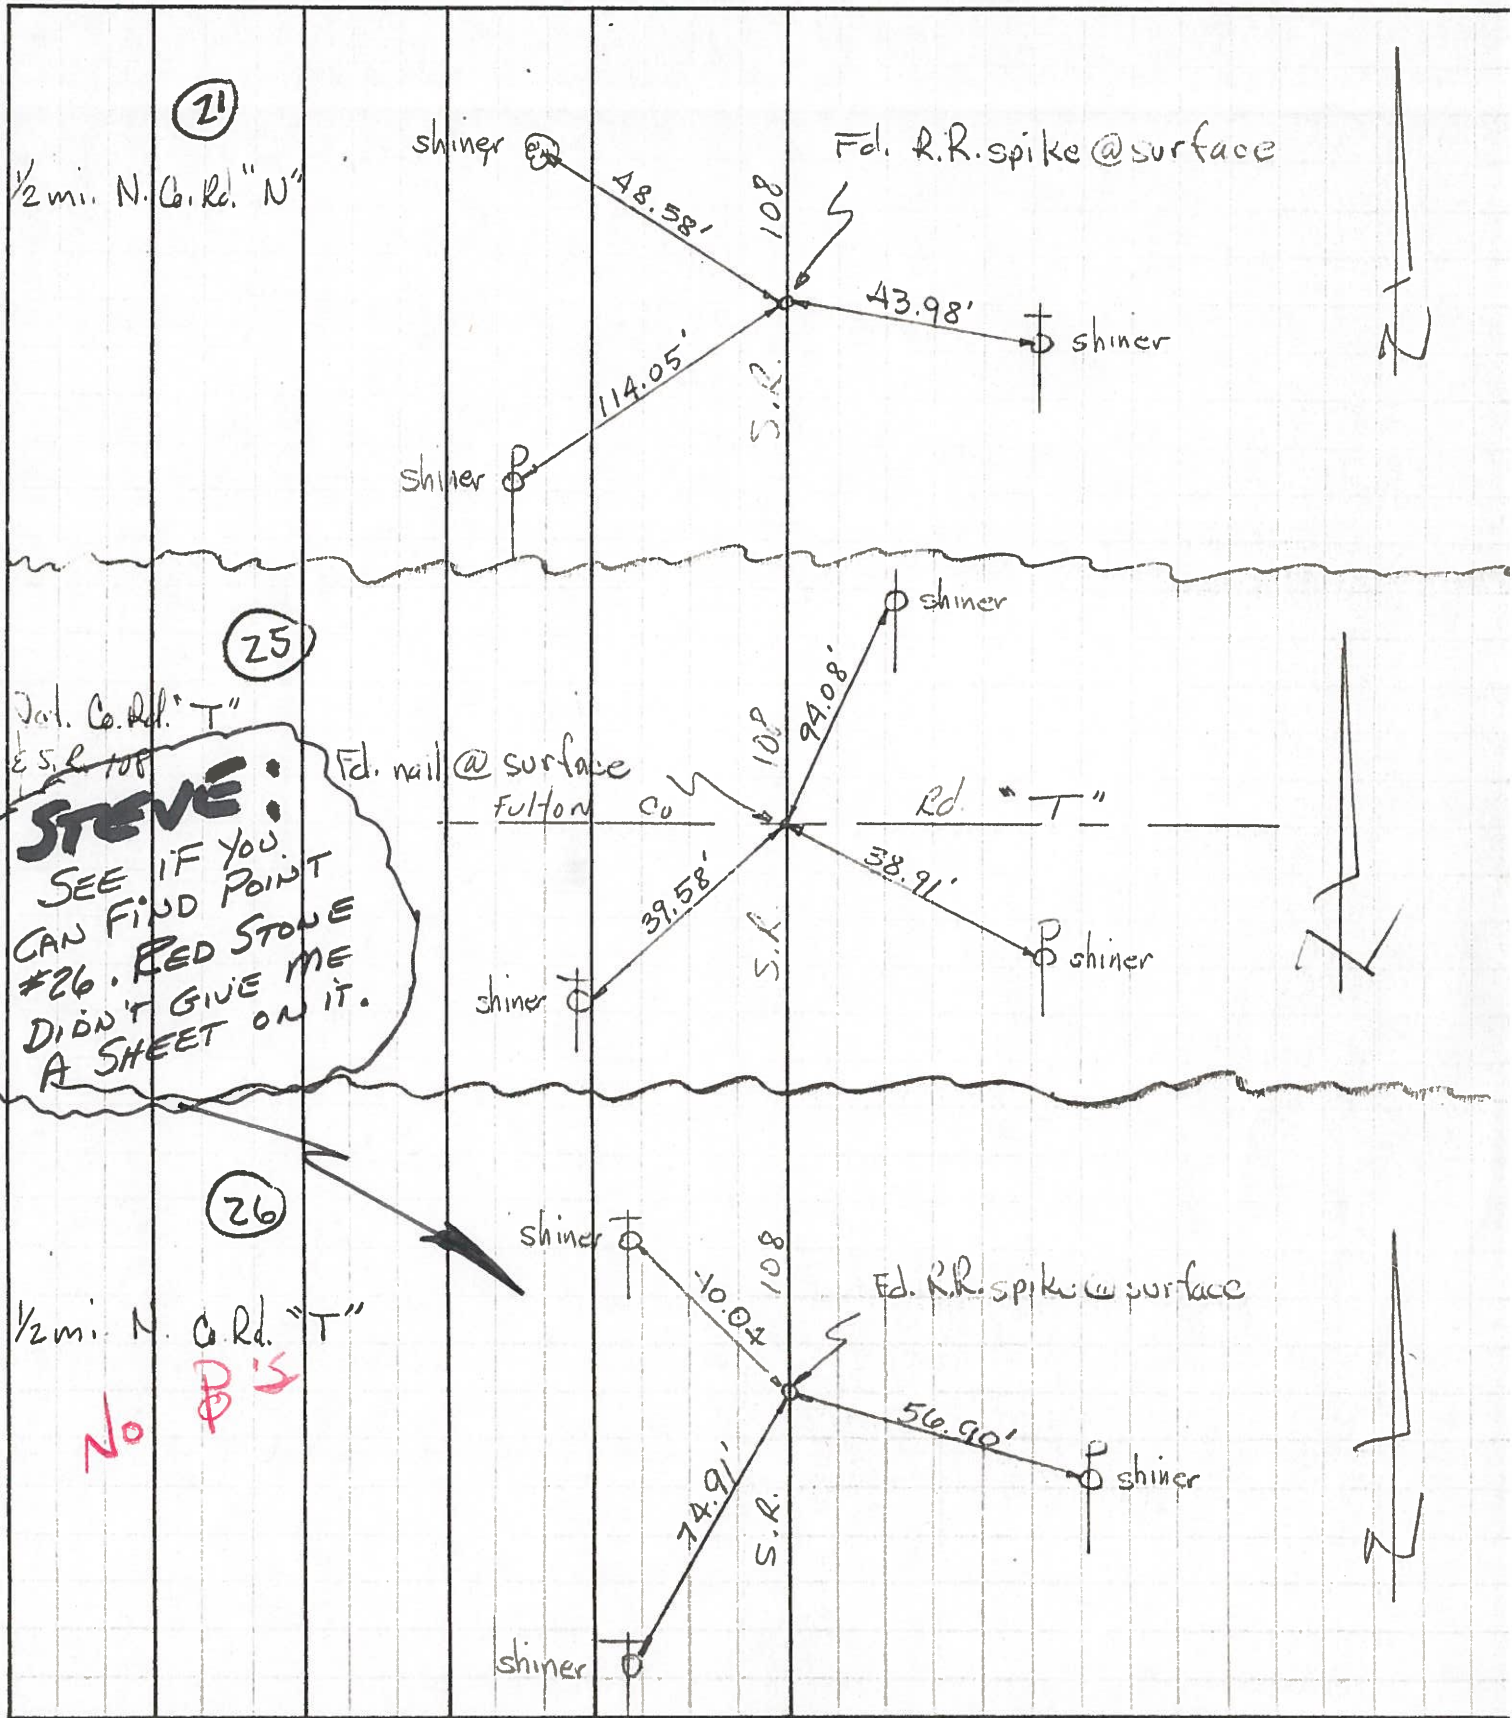 21
1/2 mi. N. Co. Rd. "N"
shiner
48.58'
108
Fd. R.R. spike @ surface
43.98'
shiner
114.05'
S.R.
shiner
N
25
Co. Rd. "T"
& S.R. 108
STEVE:
SEE IF YOU
CAN FIND POINT
#26. RED STONE
DIDN'T GIVE ME
A SHEET ON IT.
Fd. nail @ surface
Fulton Co Rd. "T"
shiner
94.08'
108
38.91'
39.58'
S.R.
shiner
shiner
N
26
1/2 mi. N. Co. Rd. "T"
No P'S
shiner
108
Fd. R.R. spike @ surface
56.90'
shiner
74.91'
S.R.
shiner
N